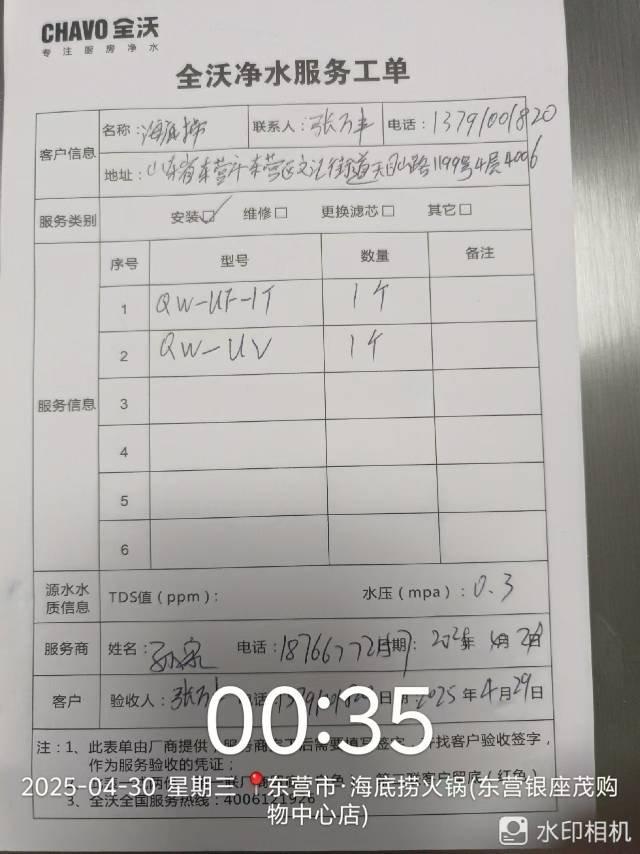 CHAVO 全沃
专注厨房净水
全沃净水服务工单
客户信息 名称：海底捞 联系人：张万丰 电话：13791001820
地址：山东省东营市东营区文汇街道天目山路1199号4层4006
服务类别 安装☑ 维修□ 更换滤芯□ 其它□
服务信息 序号 型号 数量 备注
1 QW-UF-1T 1个
2 QW-UV 1个
3
4
5
6
源水水质信息 TDS值（ppm）： 水压（mpa）：0.3
服务商 姓名： 电话：187667721 日期： 年4月28日
客户 验收人：张万丰 电话： 日期：2025年4月29日
00:35
注：1、此表单由厂商提供，服务商 下后需要填写签字，并找客户验收签字，
作为服务验收的凭证；
客户留底（红色）
3、全沃全国服务热线：4006121926
2025-04-30 星期三 东营市·海底捞火锅(东营银座茂购
物中心店)
水印相机